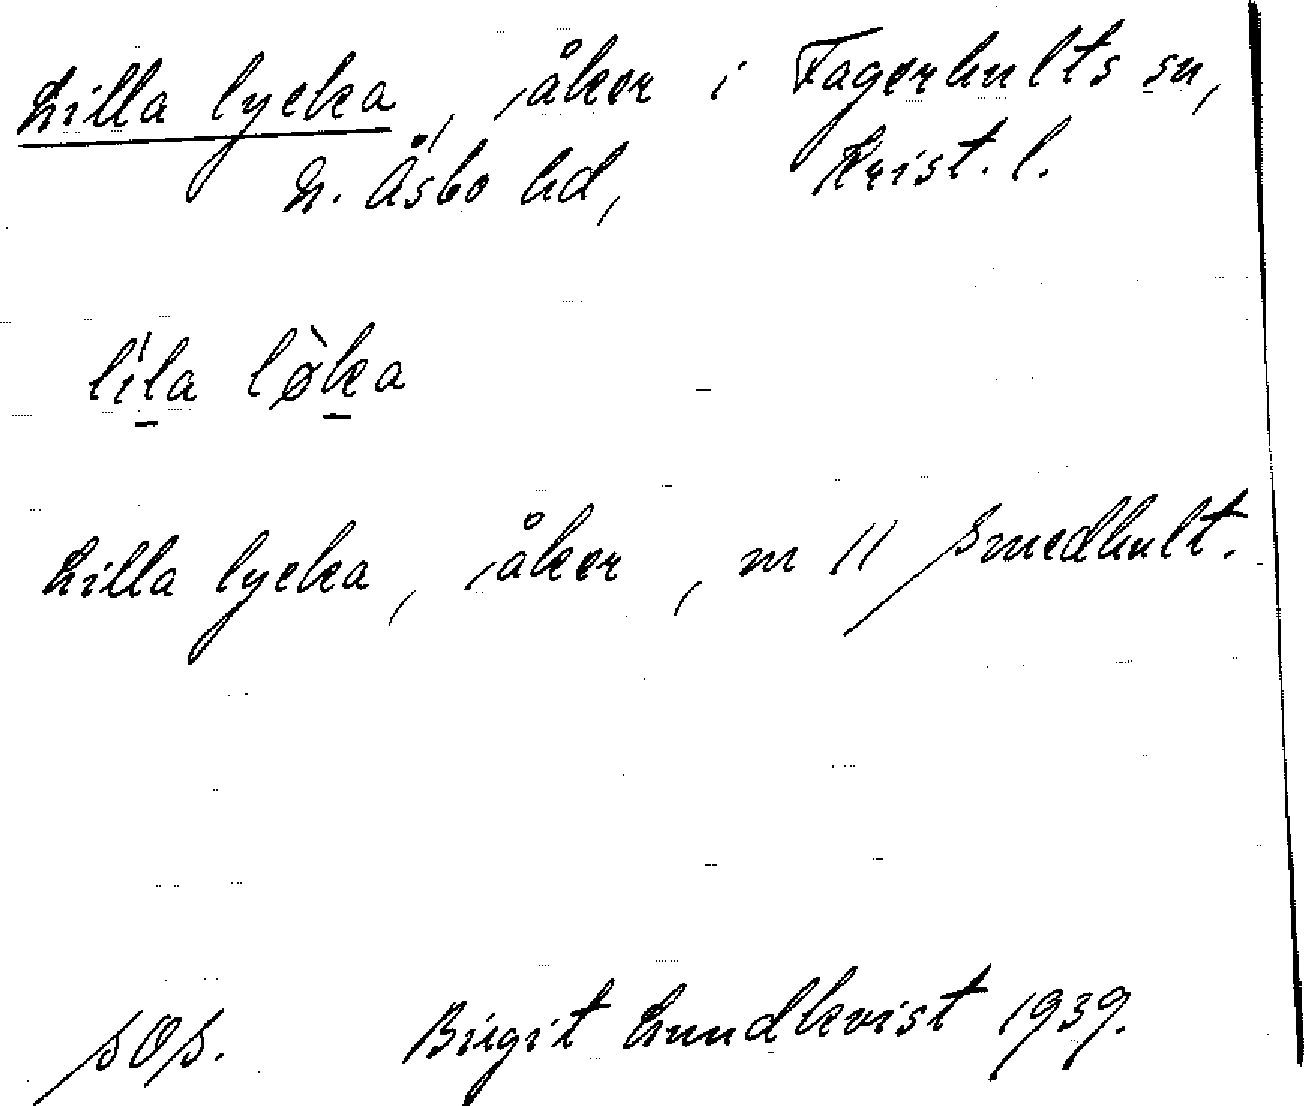 Lilla lycka, åker i Fagerhults sn,
N. Åsbo hd, Krist. l.
lila løka
Lilla lycka, åker, m 11 Smedhult.
SOS. Birgit Lundkvist 1939.